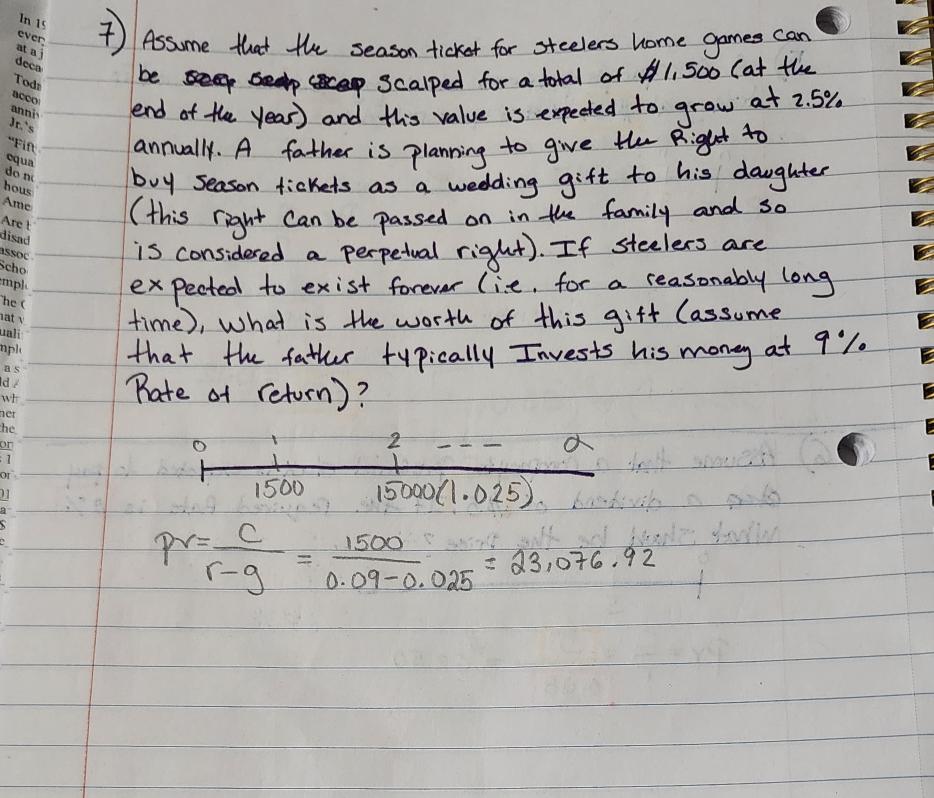 In 19
ever
at a j
deca
Toda
acco
anni
Jr.'s
"Fift
equa
do no
hous
Ame
Are t
disad
assoc
Scho
emple
The C
hat v
uali
mple
as
ld
wh
her
he
on
: 1
or
01
a
S
7) Assume that the season ticket for steelers home games can
be scalped for a total of $1,500 (at the
end of the year) and this value is expected to grow at 2.5%
annually. A father is planning to give the Right to
buy season tickets as a wedding gift to his daughter
(this right can be passed on in the family and so
is considered a perpetual right). If steelers are
expected to exist forever (i.e. for a reasonably long
time), what is the worth of this gift (assume
that the father typically Invests his money at 9%
Rate of return)?
0 1 2 - - - α
1500 15000(1.025).
PV = C / r-g = 1500 / 0.09-0.025 = 23,076.92